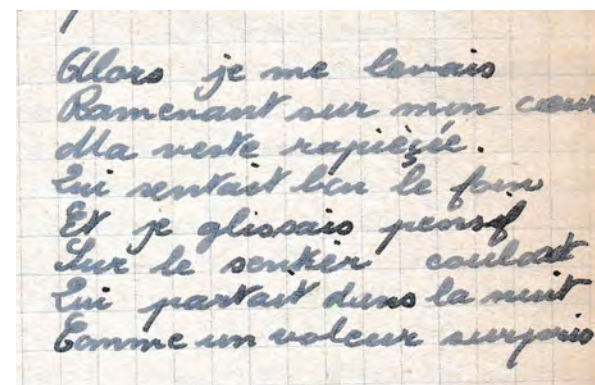 Alors je me levais
Ramenant sur mon cœur
Ma veste rapiéçée.
Qui sentait bon le foin
Et je glissais pensif
Sur le sentier coulant
Qui partait dans la nuit
Comme un voleur surpris